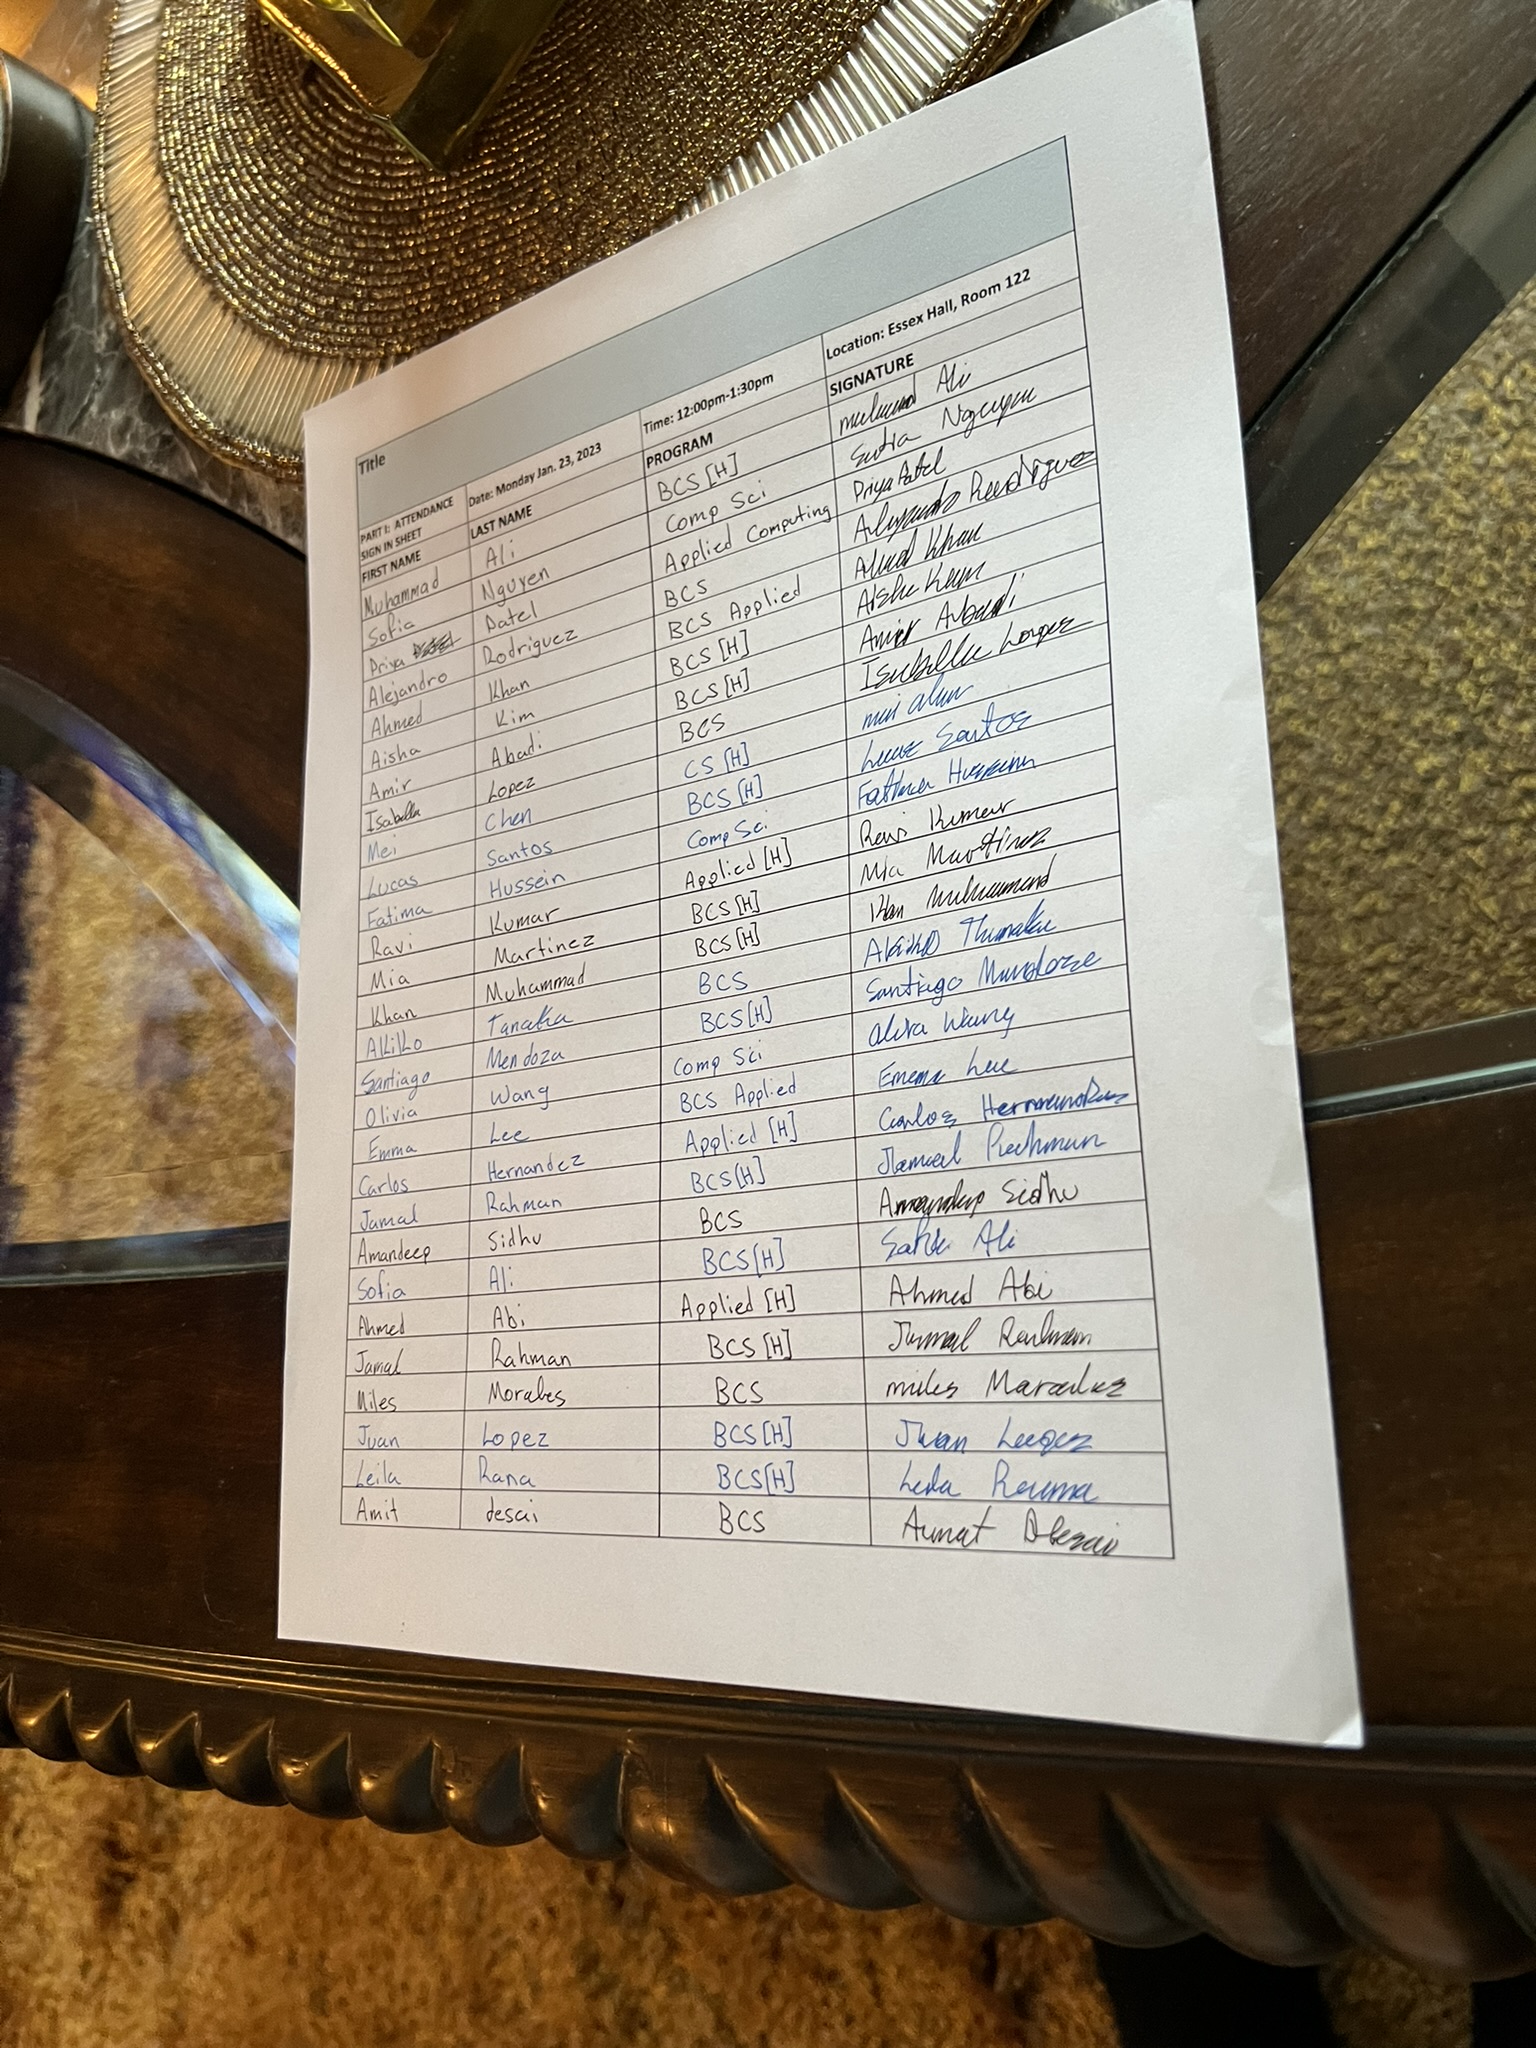 Title
PART I: ATTENDANCE SIGN IN SHEET Date: Monday Jan. 23, 2023 Time: 12:00pm-1:30pm Location: Essex Hall, Room 122
FIRST NAME LAST NAME PROGRAM SIGNATURE
Muhammad Ali BCS [H] Ali
Sofia Nguyen Comp Sci Nguyen
Priya Patel Applied Computing Priya Patel
Alejandro Rodriguez BCS Alejandro Rodriguez
Ahmed Khan BCS Applied Ahmed Khan
Aisha Kim BCS [H] Aisha
Amir Abadi BCS [H] Amir Abadi
Isabella Lopez BCS Isabella Lopez
Mei Chen CS [H] mei
Lucas Santos BCS [H] Lucas Santos
Fatima Hussein Comp Sci Fatima Hussein
Ravi Kumar Applied [H] Ravi Kumar
Mia Martinez BCS [H] Mia Martinez
Khan Muhammad BCS [H] Khan Muhammad
Akiko Tanaka BCS Akiko
Santiago Mendoza BCS [H] Santiago Mendoza
Olivia Wang Comp Sci Wang
Emma Lee BCS Applied Emma Lee
Carlos Hernandez Applied [H] Carlos Hernandez
Jamal Rahman BCS [H] Jamal Rahman
Amandeep Sidhu BCS Amandeep Sidhu
Sofia Ali BCS [H] Ali
Ahmed Abi Applied [H] Ahmed Abi
Jamal Rahman BCS [H] Jamal Rahman
Miles Morales BCS miles
Juan Lopez BCS [H] Juan Lopez
Leila Rana BCS [H] Leila
Amit desai BCS